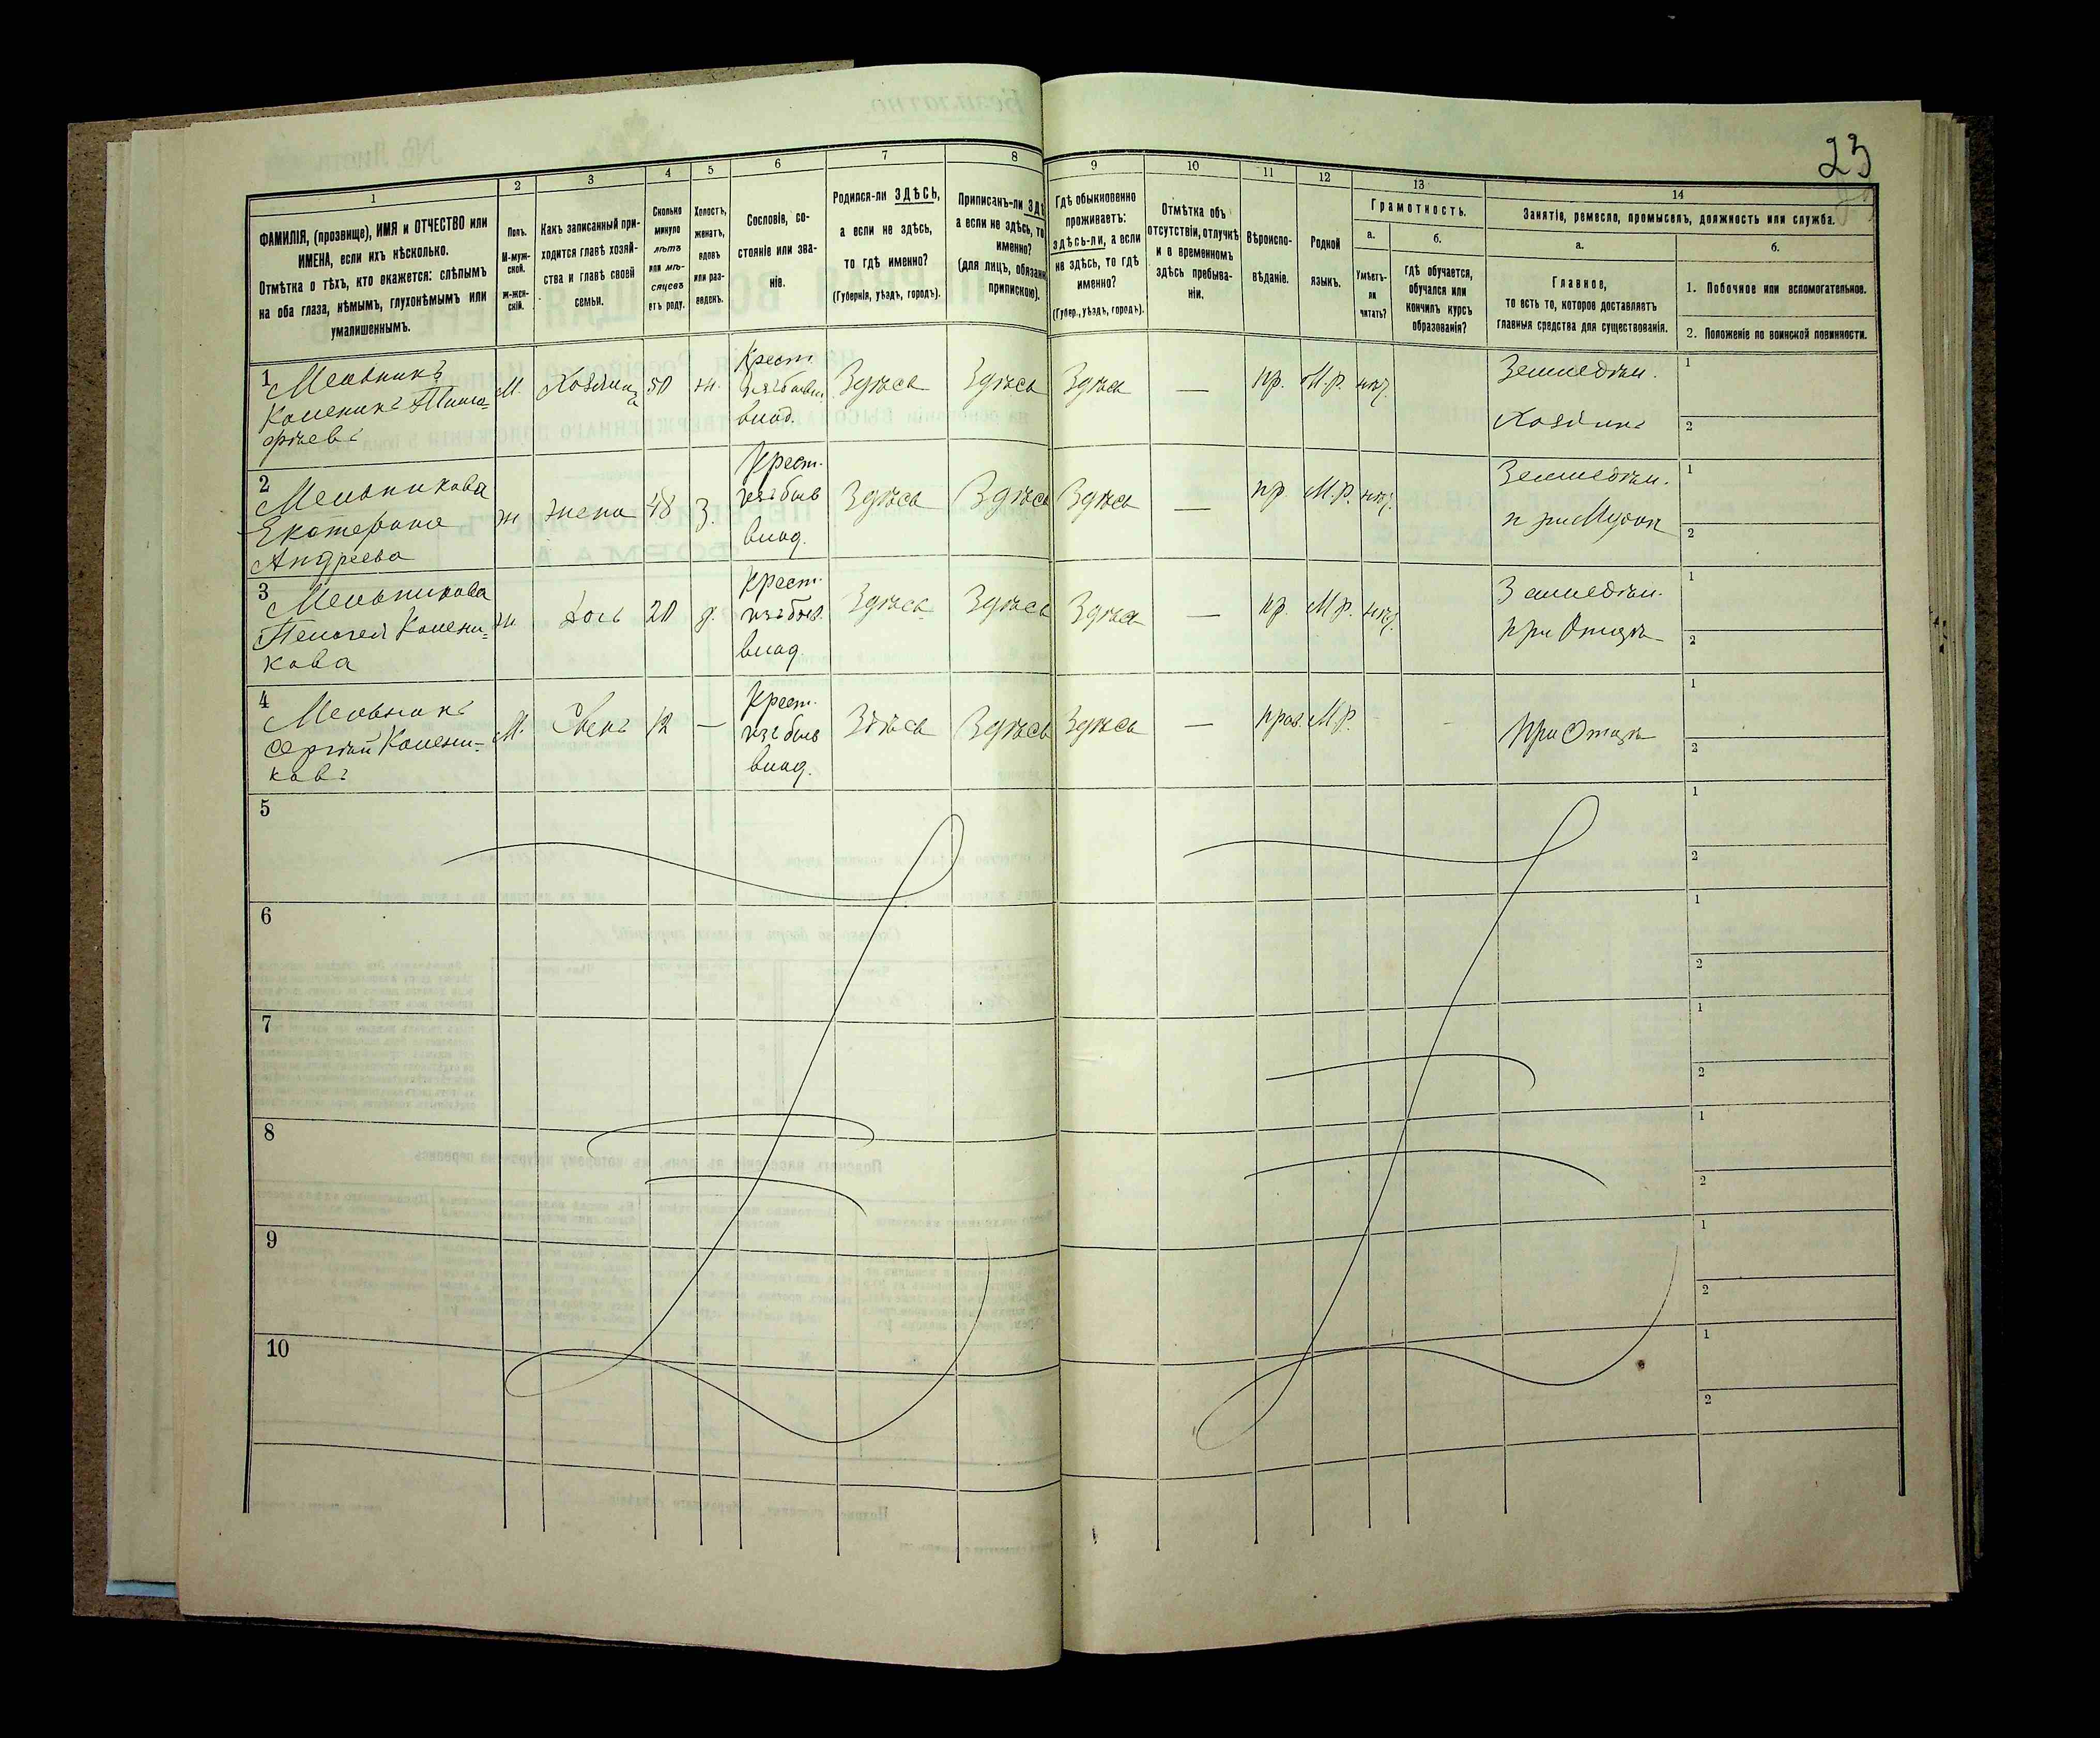 23
1
2
3
4
5
6
7
8
9
10
11
12
13
14
ФАМИЛІЯ, (прозвище), ИМЯ и ОТЧЕСТВО или
ИМЕНА, если ихъ нѣсколько.
Отмѣтка о тѣхъ, кто окажется: слѣпымъ
на оба глаза, нѣмымъ, глухонѣмымъ или
умалишеннымъ.
Полъ.
М-муж-
ской.
Ж-жен-
скій.
Какъ записанный при-
ходится главѣ хозяй-
ства и главѣ своей
семьи.
Сколько
минуло
лѣтъ
или мѣ-
сяцевъ
отъ роду.
Холостъ,
женатъ,
вдовъ
или раз-
веденъ.
Сословіе, со-
стояніе или зва-
ніе.
Родился-ли ЗДѢСЬ,
а если не здѣсь,
то гдѣ именно?
(Губернія, уѣздъ, городъ).
Приписанъ-ли
а если не здѣсь, то
именно?
(для лицъ,
припискою).
Гдѣ обыкновенно
проживаетъ:
здѣсь-ли, а если
не здѣсь, то гдѣ
именно?
(Губер., уѣздъ, городъ).
Отмѣтка объ
отсутствіи, отлучкѣ
и о временномъ
здѣсь пребыва-
ніи.
Вѣроиспо-
вѣданіе.
Родной
языкъ.
Грамотность.
а.
б.
Умѣетъ-
ли
читать?
Гдѣ обучается,
обучался или
кончилъ курсъ
образованія?
Занятіе, ремесло, промыселъ, должность или служба.
а.
б.
Главное,
то есть то, которое доставляетъ
главныя средства для существованія.
1. Побочное или вспомогательное.
2. Положеніе по воинской повинности.
1
Мельникъ
Каленикъ Тимо-
фѣевъ
М.
Хозяин
50
ж.
Крест
влад.
Здѣсь
Здѣсь
Здѣсь
—
пр.
М.р.
нѣт.
Земледѣл.
Хозяинъ
1
2
2
Мельникова
Екатерина
Андреева
ж
жена
48
З.
Крест.
изъ быв
влад.
Здѣсь
Здѣсь
Здѣсь
—
пр.
М.р.
нѣт.
Земледѣл.
при Мужѣ
1
2
3
Мельникова
Пелагея Калени-
кова
ж.
Дочь
20
д.
Крест.
изъ быв.
влад.
Здѣсь
Здѣсь
Здѣсь
—
пр.
М.р.
нѣт.
Земледѣл.
при Отцѣ
1
2
4
Мельникъ
Сергѣй Калени-
ковъ
М.
Сынъ
12
—
Крест.
изъ быв
влад.
Здѣсь
Здѣсь
Здѣсь
—
прав.
М.р.
При Отцѣ
1
2
5
1
2
6
1
2
7
1
2
8
1
2
9
1
2
10
1
2